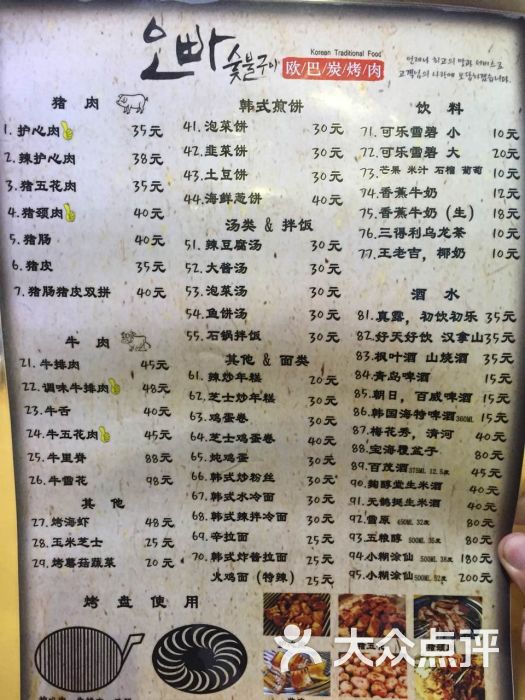 오빠
숯불구이
Korean Traditional Food
欧/巴/炭/烤/肉
언제나 최고의 맛과 서비스로
고객님의 사랑에 보답하겠습니다.
猪肉
1. 护心肉 35元
2. 辣护心肉 38元
3. 猪五花肉 35元
4. 猪颈肉 40元
5. 猪肠 40元
6. 猪皮 35元
7. 猪肠猪皮双拼 40元
牛肉
21. 牛排肉 45元
22. 调味牛排肉 48元
23. 牛舌 40元
24. 牛五花肉 45元
25. 牛里脊 88元
26. 牛雪花 98元
其他
27. 烤海虾 48元
28. 玉米芝士 25元
29. 烤蘑菇蔬菜 20元
烤盘使用
韩式煎饼
41. 泡菜饼 30元
42. 韭菜饼 30元
43. 土豆饼 30元
44. 海鲜葱饼 30元
汤类 & 拌饭
51. 辣豆腐汤 30元
52. 大酱汤 30元
53. 泡菜汤 30元
54. 鱼饼汤 30元
55. 石锅拌饭 30元
其他 & 面类
61. 辣炒年糕 20元
62. 芝士炒年糕 30元
63. 鸡蛋卷 30元
64. 芝士鸡蛋卷 40元
65. 炖鸡蛋 20元
66. 韩式炒粉丝 30元
67. 韩式水冷面 30元
68. 韩式辣拌冷面 30元
69. 辛拉面 25元
70. 韩式炸酱拉面 25元
火鸡面（特辣） 25元
饮料
71. 可乐雪碧 小 10元
72. 可乐雪碧 大 20元
73. 芒果 米汁 石榴 葡萄 10元
74. 香蕉牛奶 12元
75. 香蕉牛奶（生） 18元
76. 三得利乌龙茶 10元
77. 王老吉，椰奶 10元
酒水
81. 真露，初饮初乐 35元
82. 好天好饮 汉拿山 35元
83. 枫叶酒 山烧酒 35元
84. 青岛啤酒 15元
85. 朝日，百威啤酒 15元
86. 韩国海特啤酒 360ML 15元
87. 梅花秀，清河 40元
88. 宝海覆盆子 80元
89. 百茂酒 375ML 12.5度 45元
90. 麹醇堂生米酒 40元
91. 元鹤挺生米酒 40元
92. 雪原 450ML 32度 80元
93. 五粮醇 500ML 35度 80元
94. 小糊涂仙 500ML 38度 180元
95. 小糊涂仙 500ML 52度 200元
大众点评